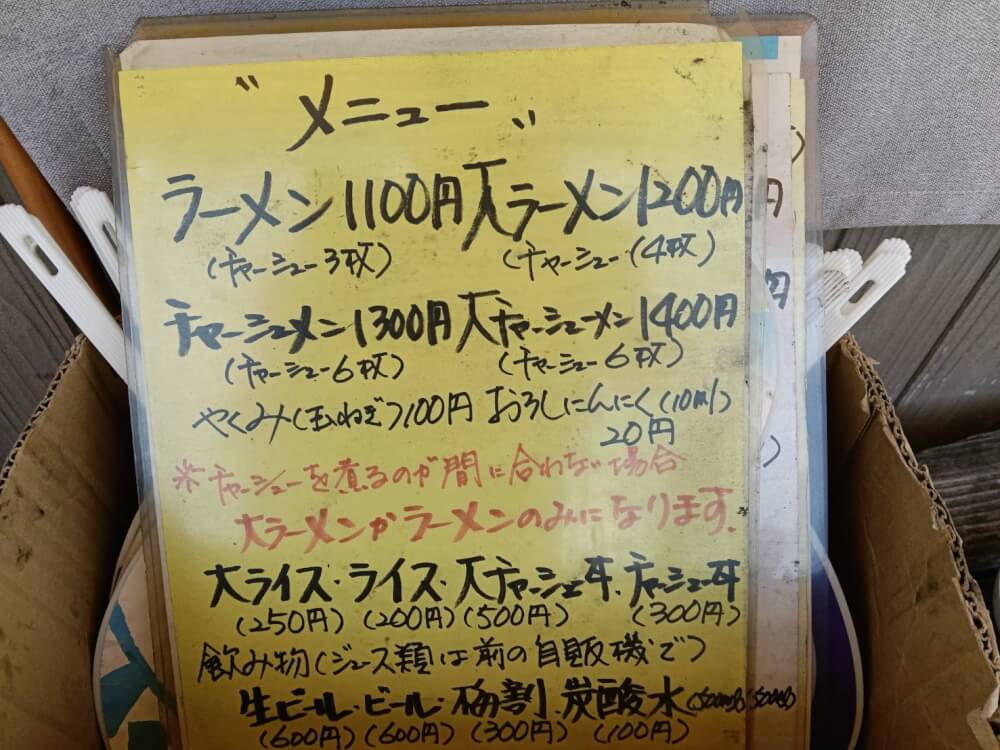 〃メニュー〃
ラーメン1100円 大ラーメン1200円
(チャーシュー3枚) (チャーシュー(4枚)
チャーシュメン1300円 大チャーシューメン1400円
(チャーシュー6枚) (チャーシュー6枚)
やくみ(玉ねぎ)100円 おろしにんにく(10ml)
20円
※チャーシューを煮るのが間に合わない場合
大ラーメンかラーメンのみになります.
大ライス・ライス・大チャーシュー丼・チャーシュー丼
(250円) (200円) (500円) (300円)
飲み物(ジュース類は前の自販機で)
生ビール・ビール・梅割・炭酸水
(600円) (600円) (300円) (100円)